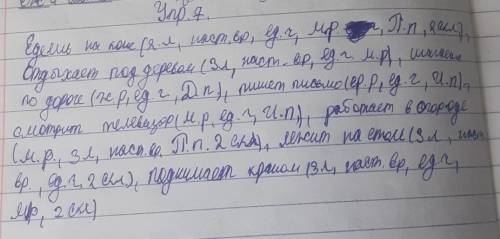 Упр. 7.
Едешь на коне (2 л, наст. вр, ед. ч, м.р П. п, 2 скл),
Отдыхает под деревом (3 л, наст. вр, ед. ч м. р), шагаем
по дороге (ж. р, ед. ч, Д п), пишет письмо (ср. р, ед. ч, И. п),
смотрит телевизор (м. р, ед. ч, И. п), работает в огороде
(м. р., 3 л, наст. вр. П. п. 2 скл), лежит на столе (3 л, наст
вр., ед. ч, 2 скл), поднимает краном (3 л, наст. вр, ед. ч,
мр, 2 скл)